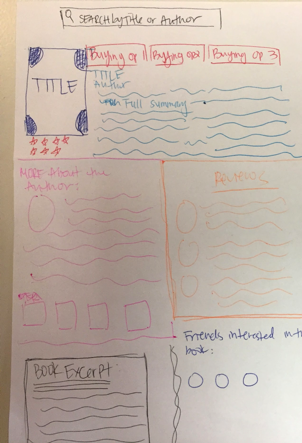 SEARCH by Title or Author
Buying op 1 Buying op 2 Buying op 3
TITLE
TITLE
Author
Full summary
MORE About the
Author:
REVIEWS
Friends interested in th
book:
BOOK Excerpt: